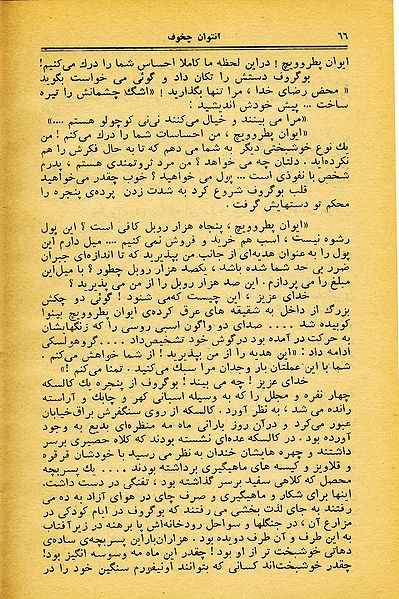 ۶۶ انتوان چخوف
ایوان پطروویچ! دراین لحظه ما کاملا احساس شما را درك می‌کنیم!
بوگروف دستش را تکان داد و گوئی می خواست بگوید
« محض رضای خدا ، مرا تنها بگذارید! » اشگ چشمانش را تیره
ساخت ... پیش خودش اندیشید :
«مرا می بینند و خیال می‌کنند نی‌نی کوچولو هستم ....»
«ایوان پطروویچ ، من احساسات شما را درك می‌کنم ! من
یك نوع خوشبختی دیگر به شما می دهم که تا به حال فکرش را هم
نکرده‌اید . دلتان چه می خواهد ؟ من مرد ثروتمندی هستم ، پدرم
شخص با نفوذی است ... پول می خواهید ؟ خوب چقدر می‌خواهید
قلب بوگروف شروع کرد به شدت زدن پرده‌ی پنجره را
محکم تو دستهایش گرفت .
«ایوان پطروویچ ، پنجاه هزار روبل کافی است ؟ این پول
رشوه نیست ، اسب هم خرید و فروش نمی کنیم .... میل دارم این
پول را به عنوان هدیه‌ای از جانب من بپذیرید که تا اندازه‌ای جبران
ضرر بی حد شما شده باشد ، یکصد هزار روبل چطور ؟ با میل‌این
مبلغ را می پردازم . این صد هزار روبل را از من می پذیرید ؟
خدای عزیز ، این چیست که‌می شنود ! گوئی دو چکش
بزرگ از داخل به شقیقه های عرق کرده‌ی ایوان پطروویچ بینوا
کوبیده شد .... صدای دو واگون اسبی روسی را که زنگهایشان
به حرکت در آمده بود درگوش خود تشخیص‌داد .... گروهولسکی
ادامه داد : «این هدیه را از من بپذیرید ! از شما خواهش می‌کنم .
شما با این عملتان بار وجدان مرا سبك می‌کنید . تمنا می‌کنم !»
خدای عزیز ! چه می بیند ! بوگروف از پنجره یك کالسکه
چهار نفره و مجلل را که به وسیله اسبانی کهر و چابك و آراسته
رانده می شد ، به نظر آورد . کالسکه از روی سنگفرش براق‌خیابان
عبور می‌کرد و درآن روز بارانی ماه مه منظره‌ای بدیع به وجود
آورده بود . در کالسکه عده‌ای نشسته بودند که کلاه حصیری برسر
داشتند و چهره هایشان خندان به نظر می رسید با خودشان قرقره
و قلاویز و کیسه های ماهیگیری برداشته بودند .... یك پسربچه
محصل که کلاهی سفید برسر گذاشته بود ، تفنگی در دست داشت.
اینها برای شکار و ماهیگیری و صرف چای در هوای آزاد به ده می
رفتند به جای لذت بخشی می رفتند که بوگروف در ایام کودکی در
مزارع آن ، در جنگلها و سواحل رودخانه‌اش پا برهنه در زیرآفتاب
به این طرف و آن طرف دویده بود . هزاران‌بار‌این پسربچه‌ی ساده‌ی
دهاتی خوشبخت تر از او بود ! چقدر این ماه مه وسوسه انگیز بود!
چقدر خوشبخت‌اند کسانی که بتوانند اونیفورم سنگین خود را در